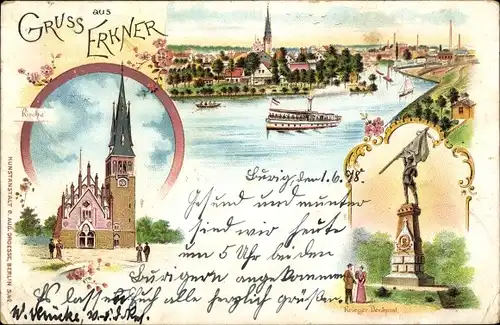 GRUSS aus ERKNER
Kirche
Burig, den 1.6.98.
Gesund und munter
sind wir heute
um 5 Uhr bei den
Burigern angekommen
Es lassen alle herzlich grüßen
W.
Krieger-Denkmal
KUNSTANSTALT v. AUG. DROESSE, BERLIN S.W.